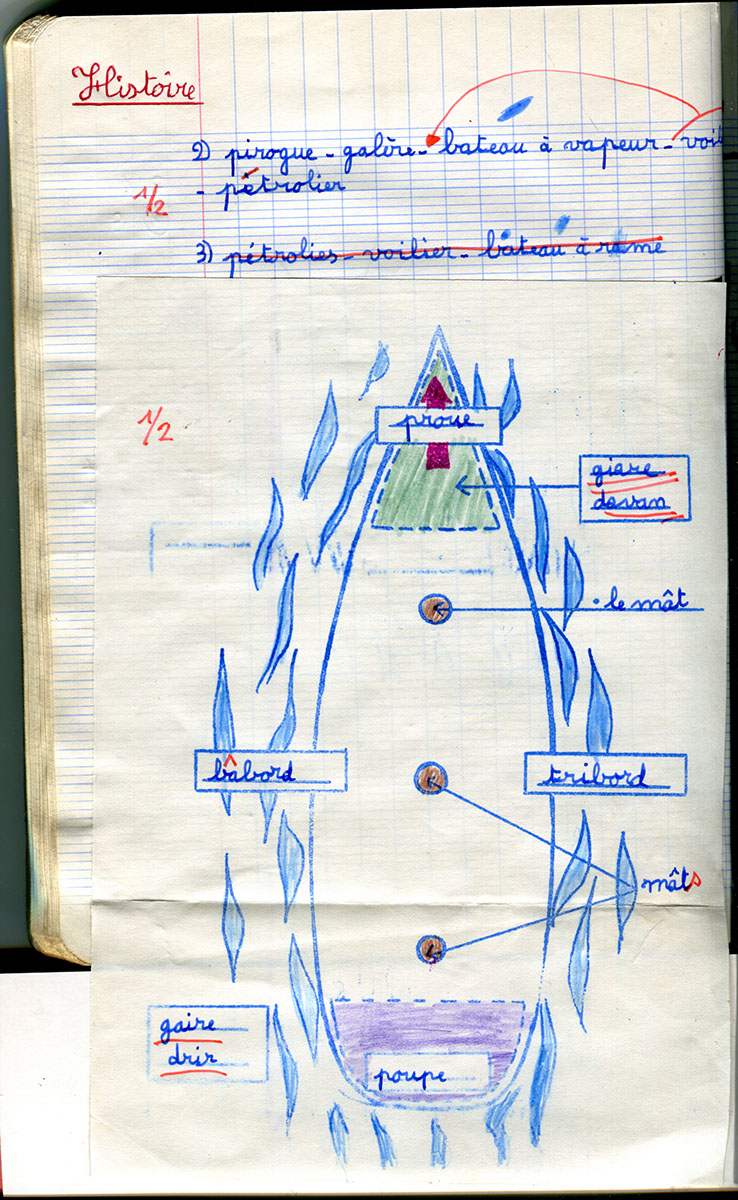 Histoire
2) pirogue - galère - bateau à vapeur - voil
- pétrolier
1/2
3) pétrolies - voilier - bateau à rame
1/2
proue
giare
davan
. le mât
bâbord
tribord
mâts
gaire
drir
poupe